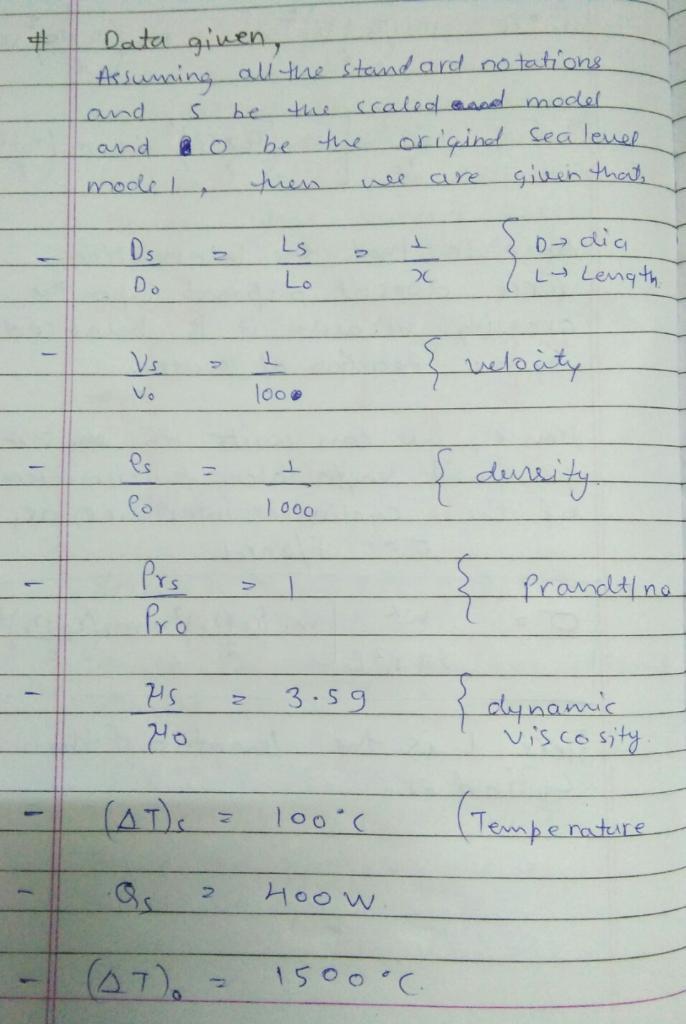 # Data given,
Assuming all the standard notations
and s be the scaled model
and o be the original sea level
model, then we are given that,
- Ds/Do = Ls/Lo = 1/x { D → dia
L → Length
- Vs/Vo = 1/100 { velocity
- ρs/ρo = 1/1000 { density
- Prs/Pro = 1 { Prandtl no
- μs/μo = 3.59 { dynamic
viscosity
- (ΔT)s = 100°C (Temperature
- Qs = 400 W
- (ΔT)o = 1500°C.